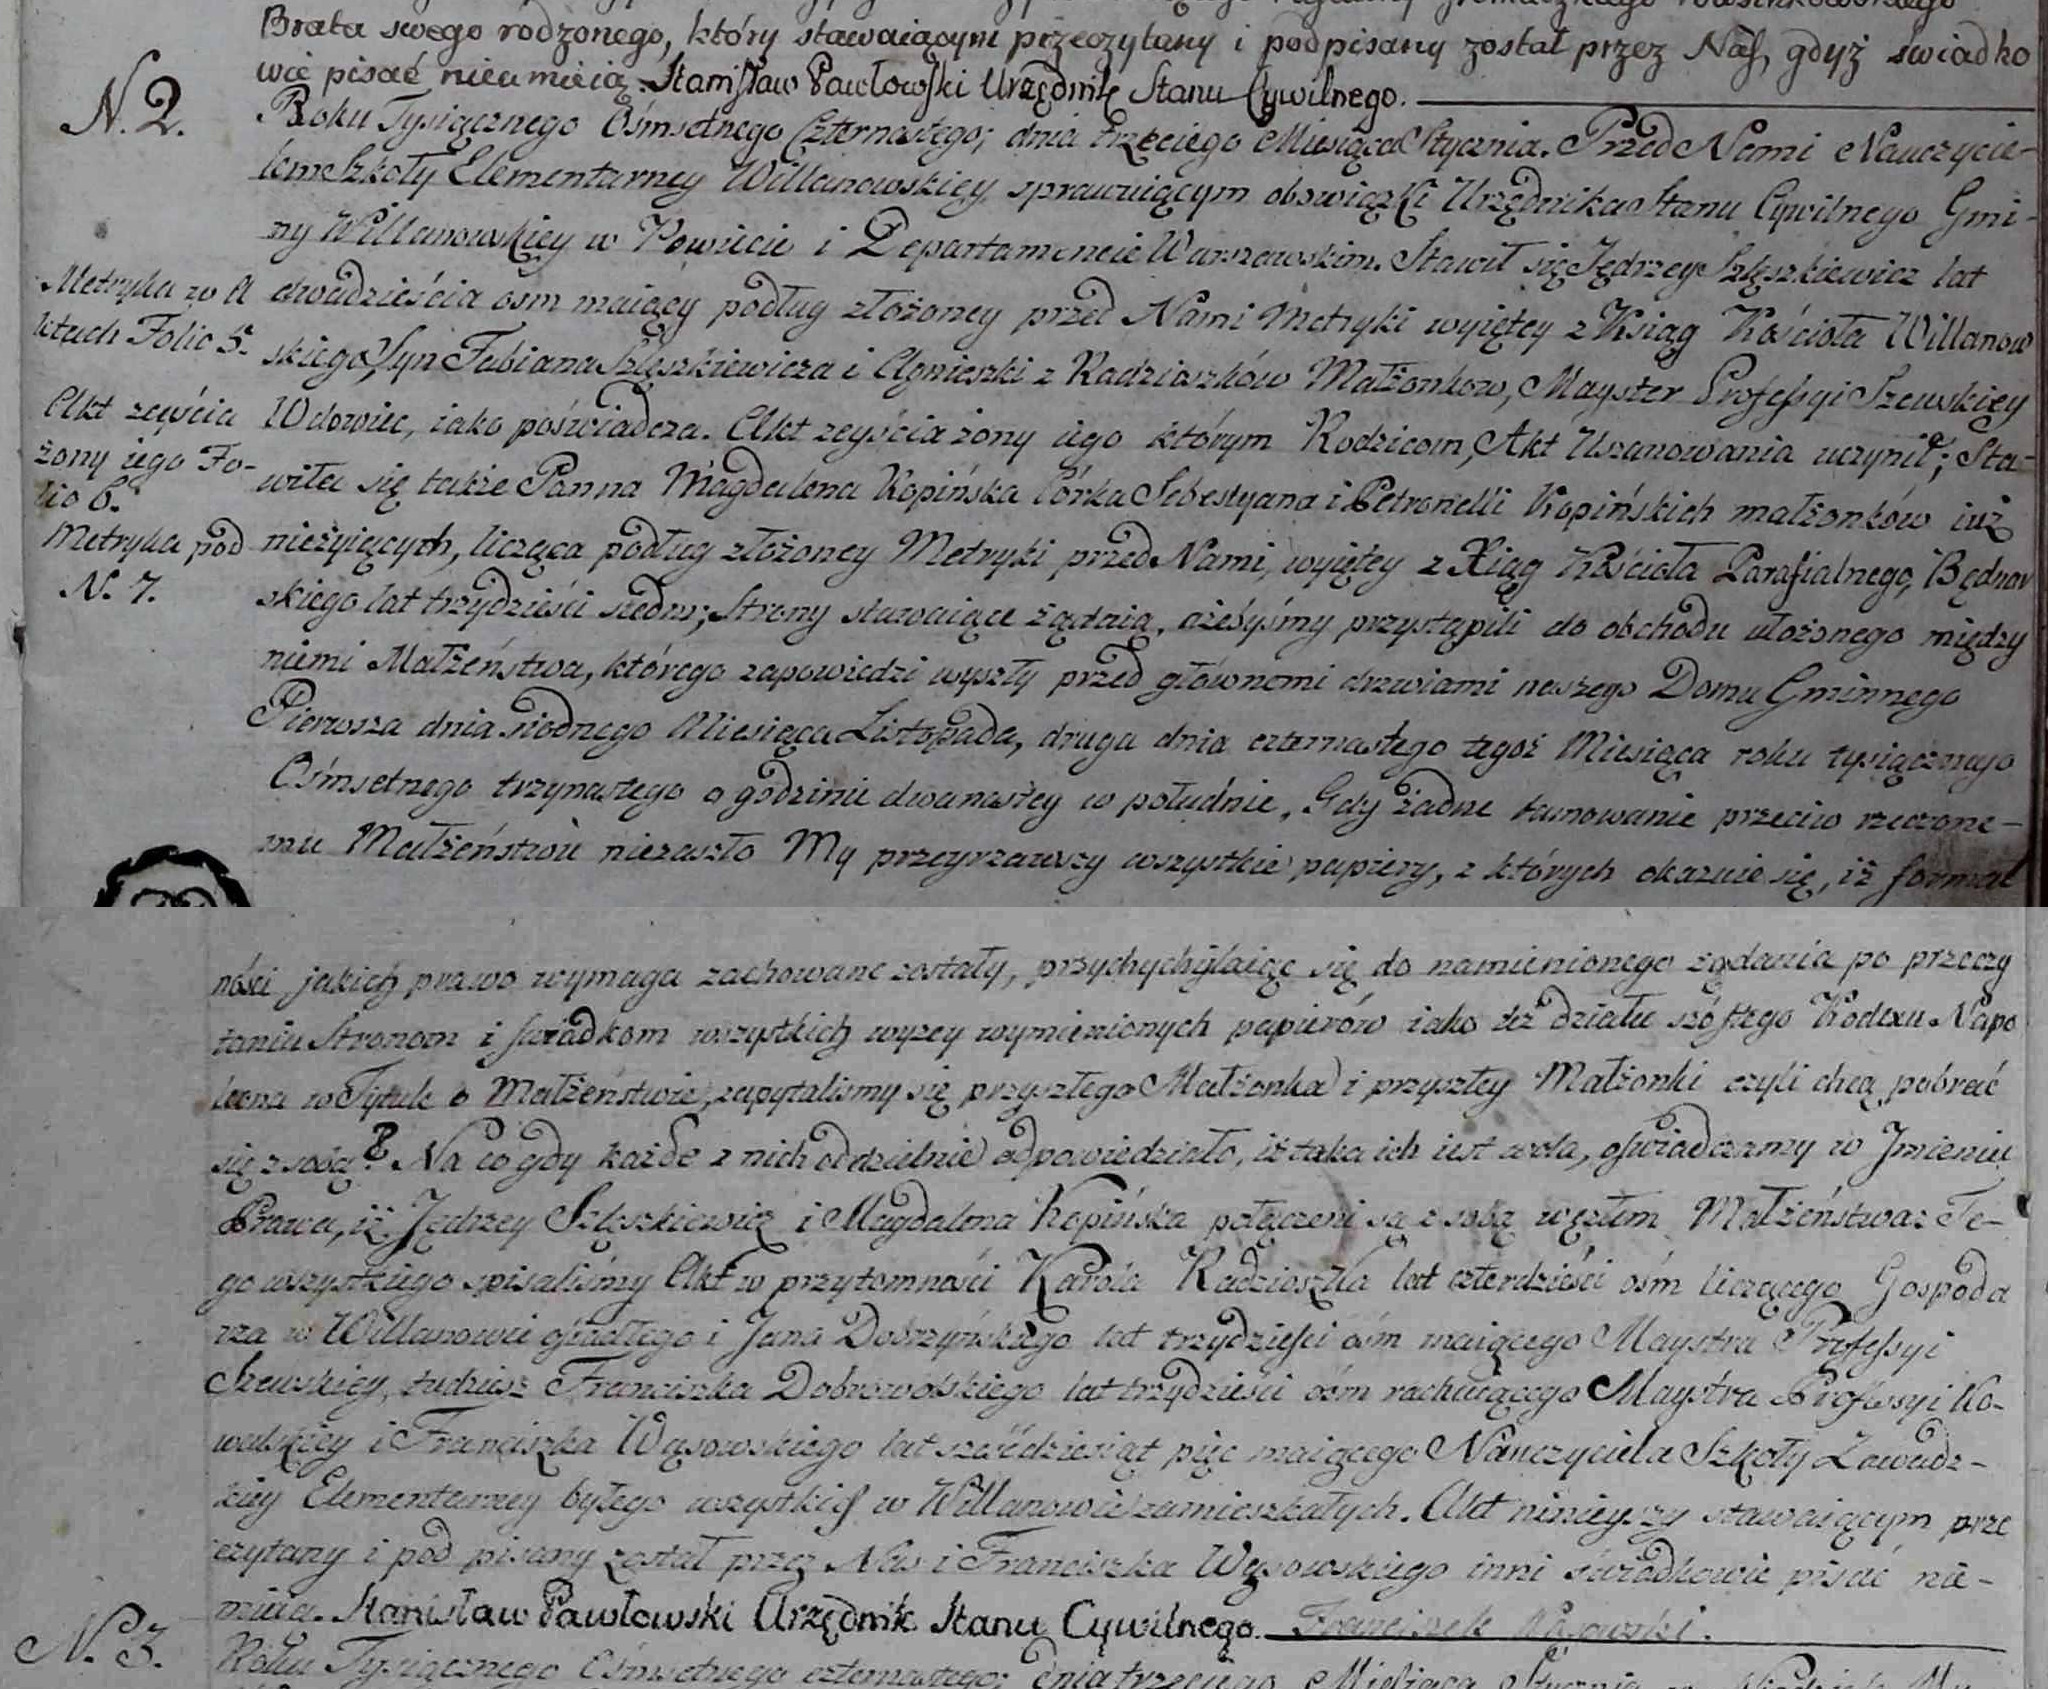 Brata swego rodzonego, który stawaiącym przeczytany i podpisany został przez Nas, gdyż świadko
wie pisać nieumieią. Stanisław Pawłowski Urzędnik Stanu Cywilnego.
N. 2.
Roku Tysiącznego Ośmsetnego Czternastego; dnia trzeciego Miesiąca Stycznia. Przed Nami Nauczycie-
lem Szkoły Elementarney Willanowskiey, sprawuiącym obowiązki Urzędnika Stanu Cywilnego Gmi-
ny Willanowskiey w Powiecie i Departamencie Warszawskim. Stawił się Jędrzey Szlęszkiewicz lat
Metryka w A
ktach Folio 5.
dwadzieścia osm maiący podług złożoney przed Nami Metryki wyiętey z Ksiąg Kościoła Willanow
skiego, Syn Fabiana Szlęszkiewicza i Agnieszki z Radzioszków Małżonkow, Mayster Professyi Szewskiey
Akt zeyścia
żony iego Fo-
lio 6.
Wdowiec, iako poświadcza. Akt zeyścia żony iego którym Rodzicom, Akt Uszanowania uczynił; Sta-
wiła się także Panna Magdalena Kopińska Córka Sebestyana i Petronelli Kopińskich małżonków iuż
Metryka pod
N. 7.
nieżyiących, licząca podług złożoney Metryki przed Nami, wyiętey z Xiąg Kościoła Parafialnego, Będnar
skiego lat trzydzieści siedm; Strony stawaiące żądaią, ażebyśmy przystąpili do obchodu ułożonego między
niemi Małżeństwa, którego zapowiedzi wyszły przed głównemi drzwiami naszego Domu Gminnego
Pierwsza dnia siodmego Miesiąca Listopada, druga dnia czternastego tegoż Miesiąca roku tysiącznego
Ośmsetnego trzynastego o godzinie dwunastey w południe, Gdy żadne tamowanie przeciw rzeczone-
mu Małżeństwu niezaszło My przeyrzawszy wszystkie papiery, z których okazuie się, iż formal
ności jakich prawo wymaga zachowane zostały, przychychylaiąc się do namienionego żądania po przeczy
taniu Stronom i swiadkom wszystkich wyzey wymienionych papierów iako też działu szóstego Kodexu Napo
leona w Tytule o Małżeństwie, zapytalismy się przyszłego Małżonka i przyszłey Małżonki czyli chcą pobrać
się z sobą? Na co gdy każde z nich oddzielnie odpowiedziało, iż taka ich iest wola, oświadczamy w Jmieniu
Prawa, iż Jędrzey Szlęszkiewicz i Magdalena Kopińska połączeni są z sobą węzłem Małżeństwa: Te-
go wszystkiego spisaliśmy Akt w przytomności Karola Radzioszka lat czterdzieści ośm liczącego Gospoda
rza w Willanowie osiadłego i Jana Dobrzyńskiego lat trzydzieści ośm maiącego Maystra Professyi
Szewskiey, tudziesz Franciszka Dobrowolskiego lat trzydzieści ośm rachuiącego Maystra Professyi Ko-
walskiey i Franciszka Wąsowskiego lat sześćdziesiąt pięc maiącego Nauczyciela Szkoły Zawadz-
kiey Elementarney byłego wszystkich w Willanowie zamieszkałych. Akt ninieyszy stawaiącym prze
czytany i pod pisany został przez Nas i Franciszka Wąsowskiego inni świadkowie pisać nie-
mieią. Stanisław Pawłowski Urzędnik Stanu Cywilnego. Franciszek Wąsowski.
N. 3.
Roku Tysiącznego Ośmsetnego czternastego; dnia trzeciego Miesiąca Stycznia